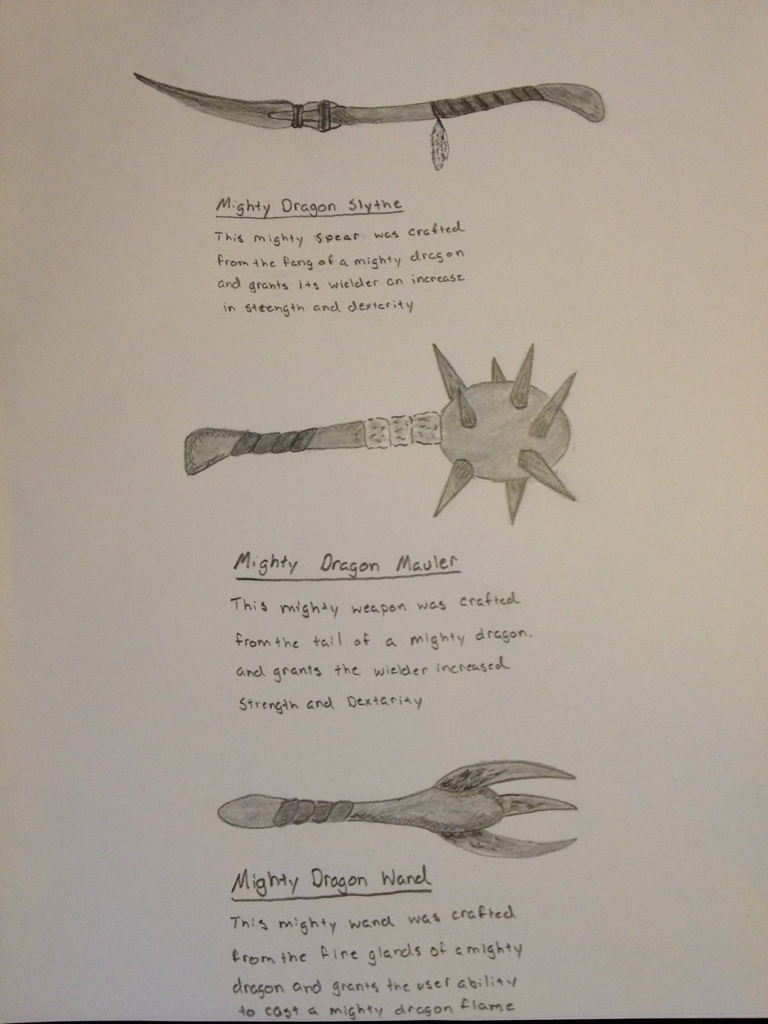 Mighty Dragon Slythe
This mighty spear was crafted
from the fang of a mighty dragon
and grants its wielder an increase
in strength and dextarity
Mighty Dragon Mauler
This mighty weapon was crafted
from the tail of a mighty dragon.
and grants the wielder increased
Strength and Dextarity
Mighty Dragon Wand
This mighty wand was crafted
from the fire glands of a mighty
dragon and grants the user ability
to cast a mighty dragon flame